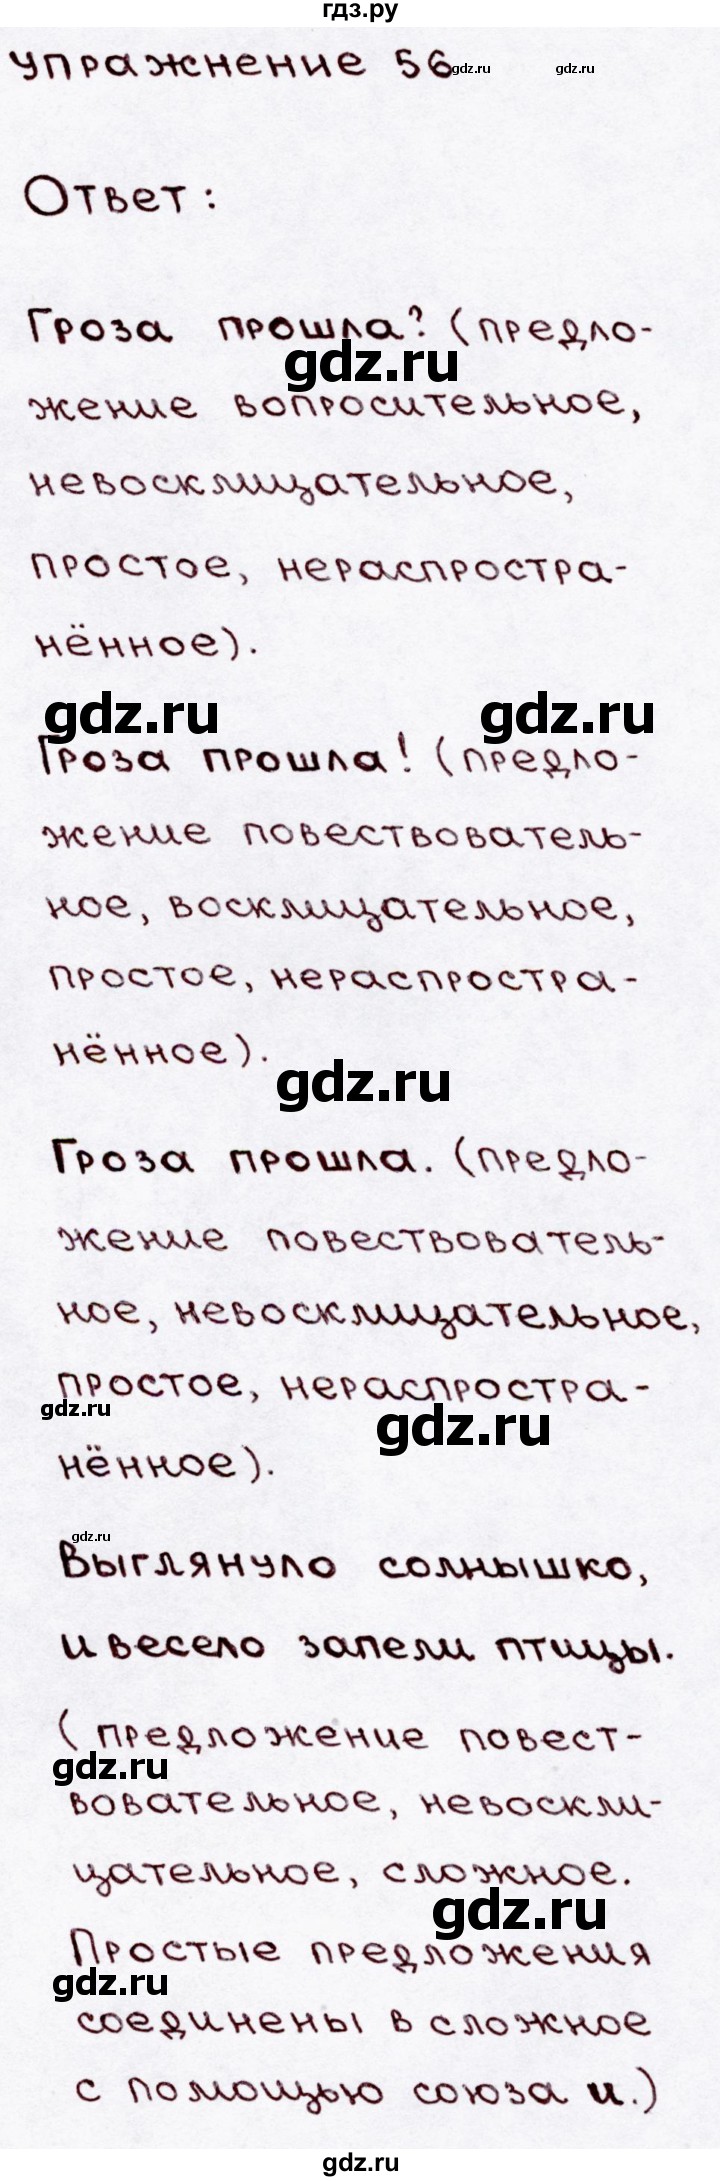 гдз.ру
упражнение 56
gdz.ru gdz.ru
Ответ:
Гроза прошла? (предло-
gdz.ru
жение вопросительное,
невосклицательное,
простое, нераспростра-
нённое).
gdz.ru gdz.ru
Гроза прошла! (предло-
жение повествователь-
ное, восклицательное,
простое, нераспростра-
нённое).
gdz.ru
Гроза прошла. (предло-
жение повествователь-
ное, невосклицательное,
простое, нераспростра-
gdz.ru gdz.ru
нённое).
gdz.ru
Выглянуло солнышко,
и весело запели птицы.
(предложение повест-
gdz.ru
вовательное, невоскли-
цательное, сложное.
gdz.ru
Простые предложения
gdz.ru
соединены в сложное
с помощью союза и.)
gdz.ru